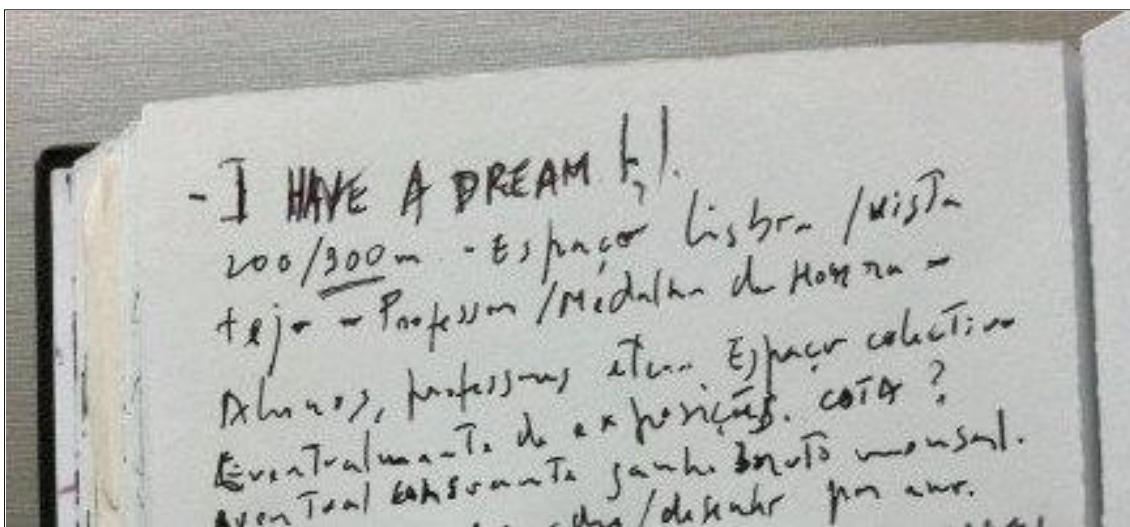 - I HAVE A DREAM !
200/300m - Espaço Lisboa / vista
tejo - Professor / Medalha de Honra -
Alunos, professores etc... Espaço colectivo
Eventualmente de exposições. COTA ?
eventual ganho bruto mensal.
/desenhar por ano.